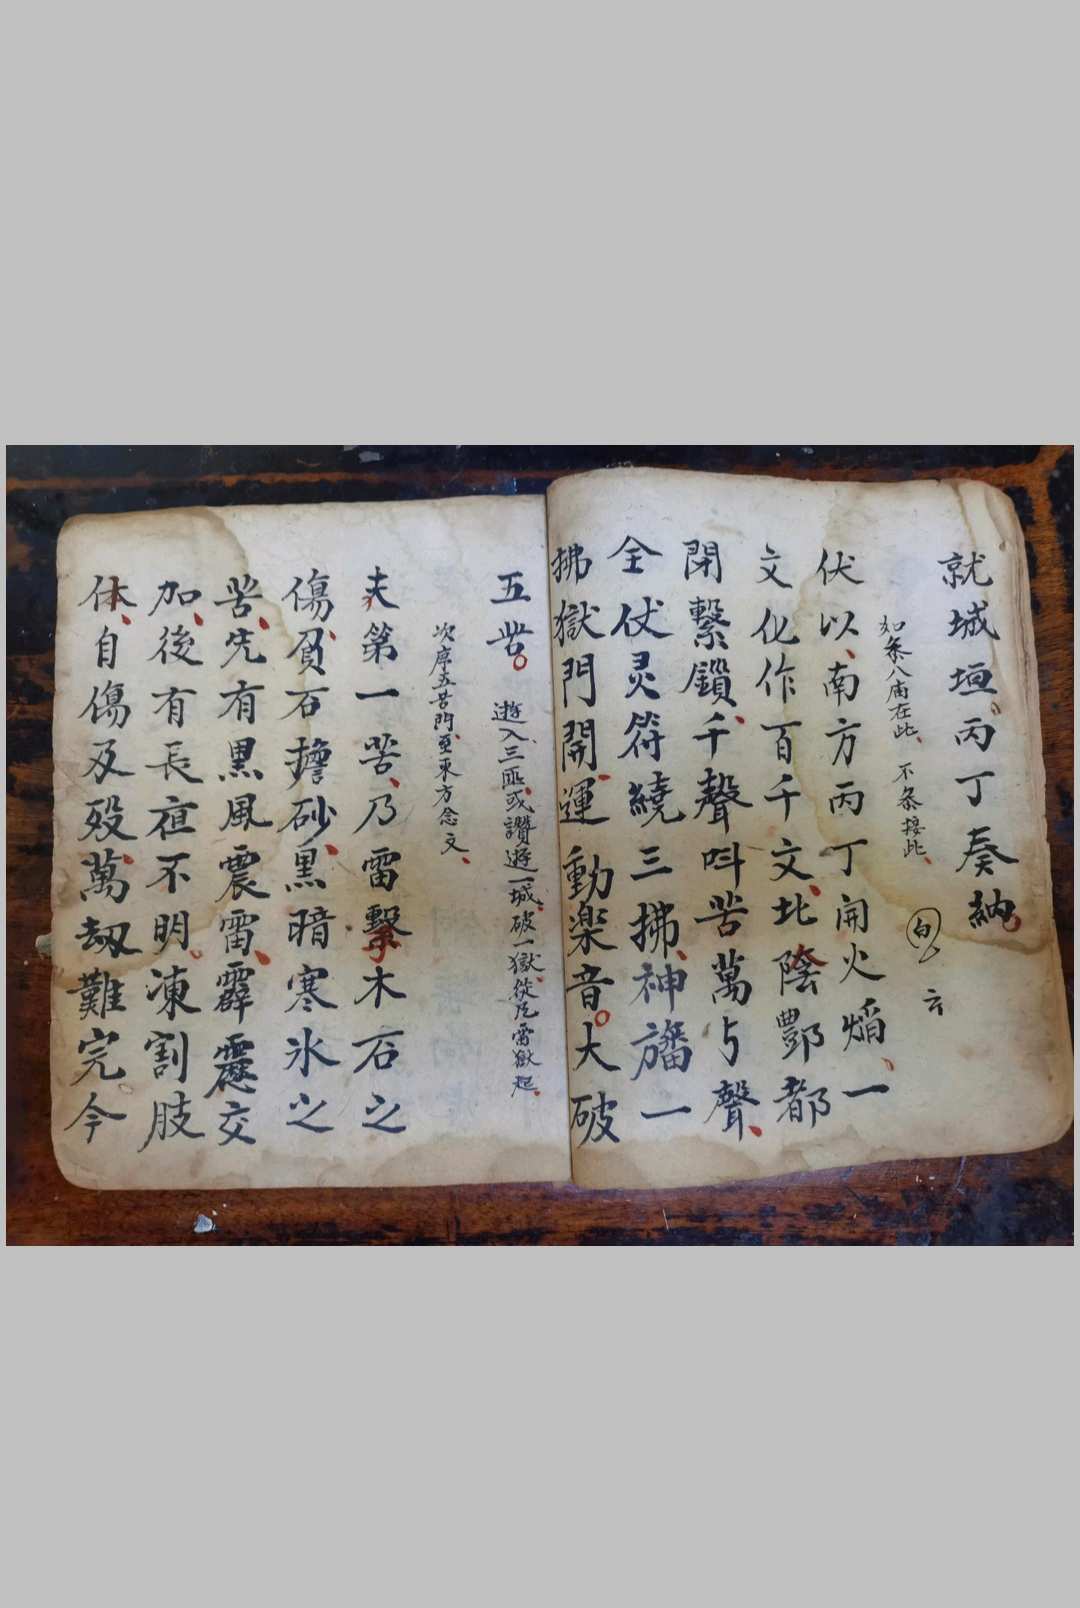 就城垣丙丁奏納
如叅八庙在此、不叅接此、 白 云
伏以、南方丙丁開火焰、一
文化作百千文、北陰酆都
閉繫鎖、千聲呌苦萬与聲、
全仗灵符繞三拂、神旛一
拂獄門開、運動楽音。大破
五苦。 遊入三匝、或讚遊一城、破一獄、從雷獄起、
次序五苦門、至東方念文、
夫第一苦、乃雷擊木石之
傷、負石擔砂、黒暗寒氷之
苦、先有黒風震雷、霹靂交
加、後有長夜不明、凍割肢
体、自傷及殁、萬劫難完、今